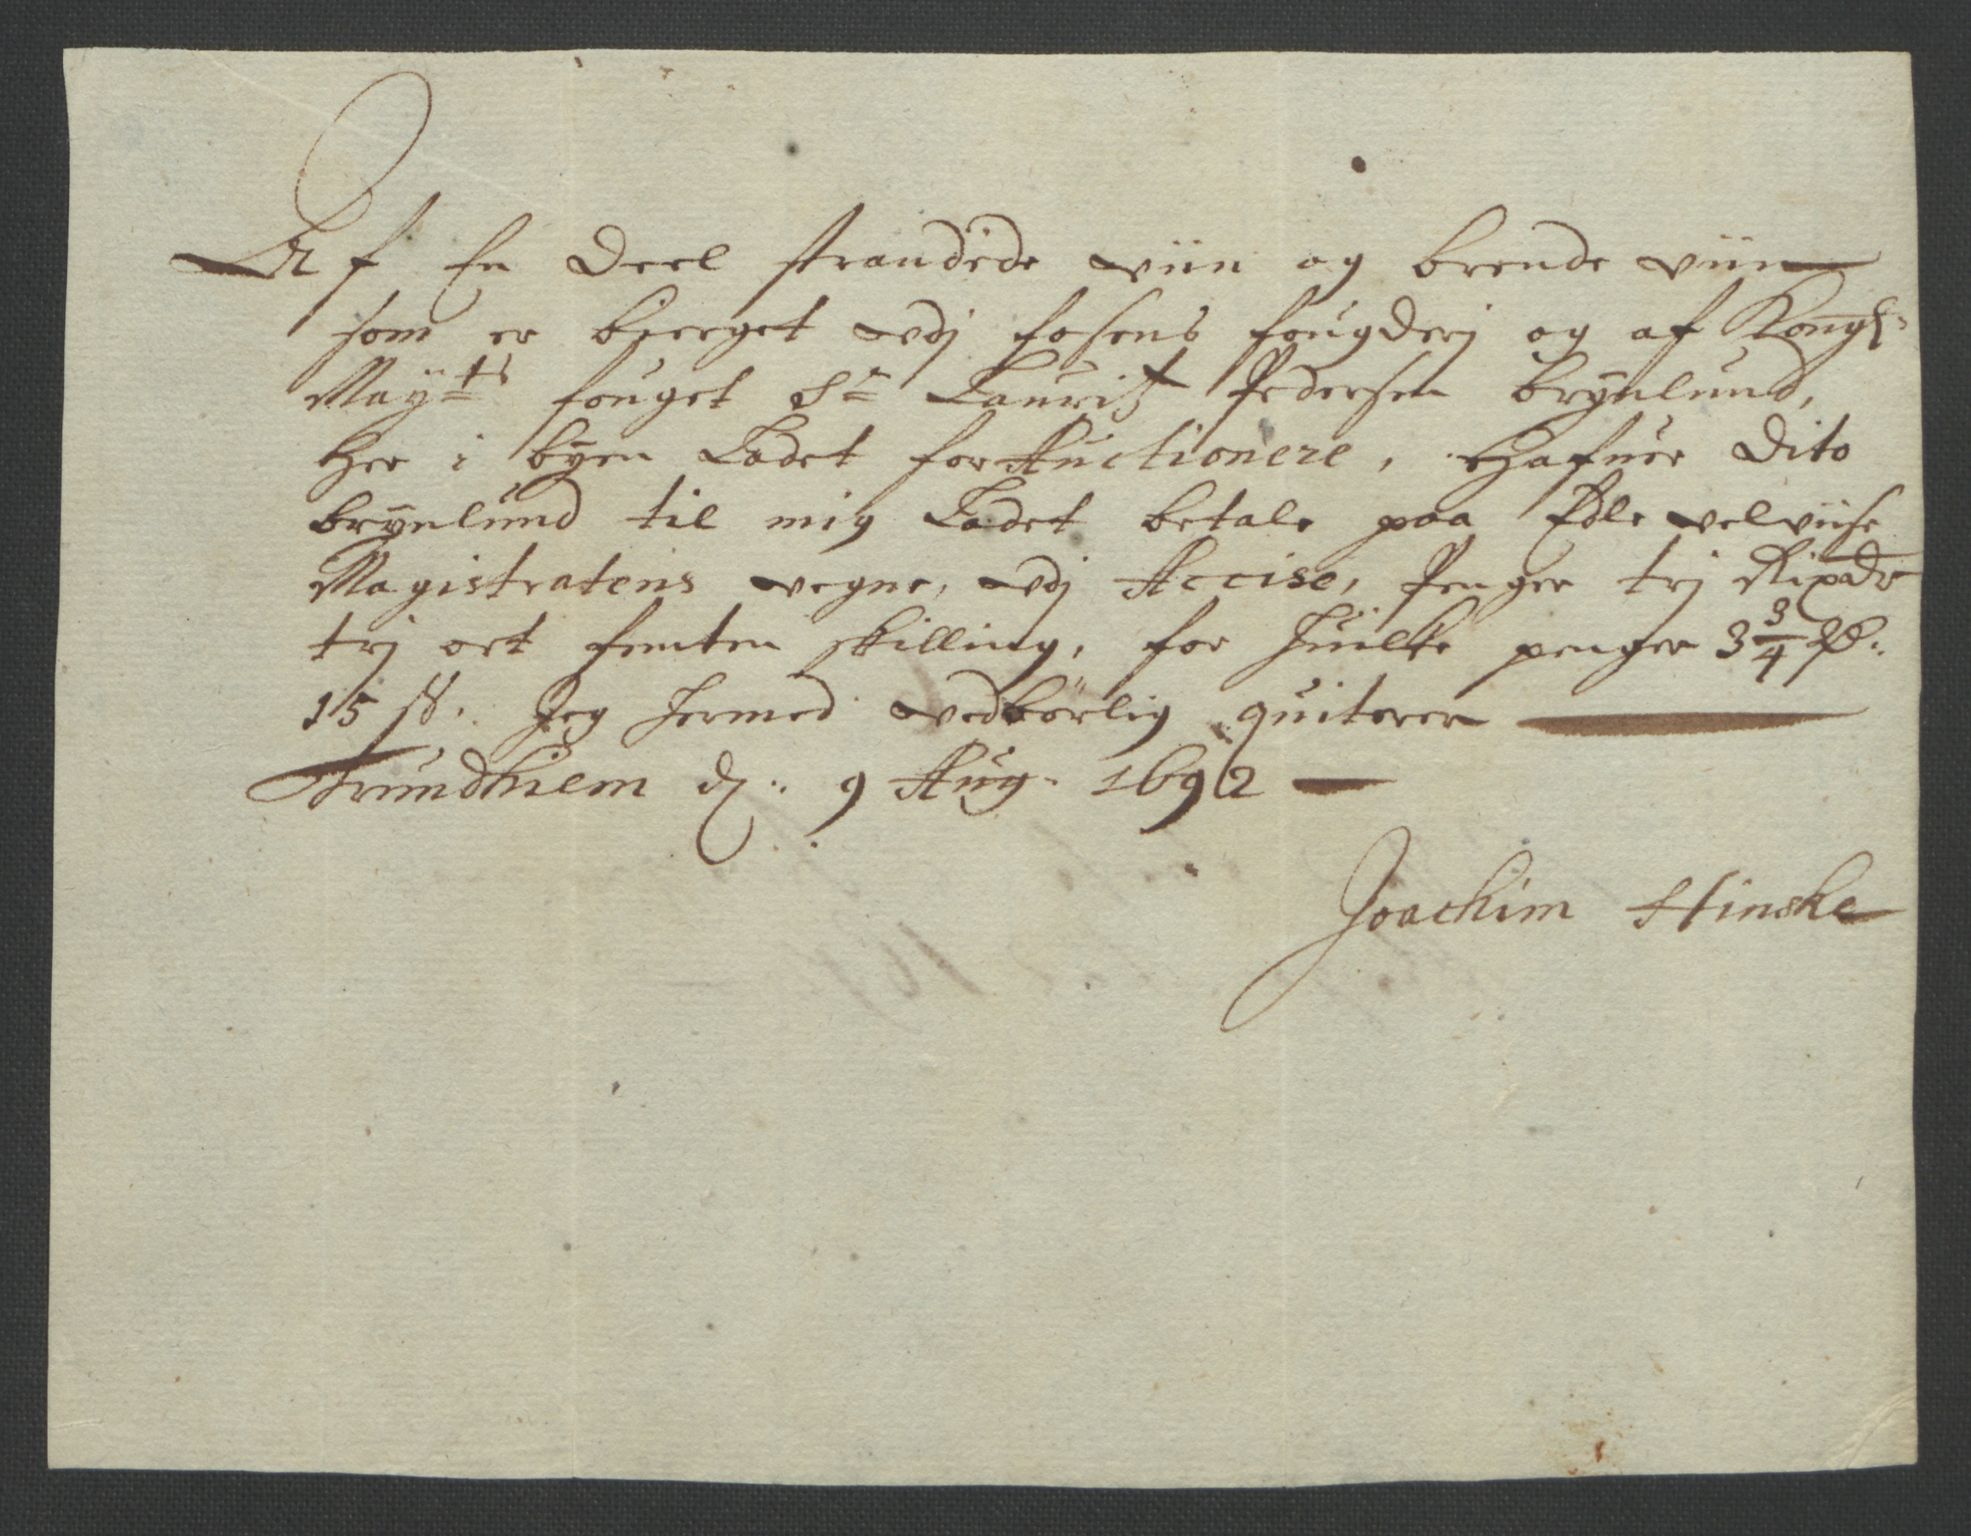 Af En Deel strandede viin og brende viin
som er bierget udj fosens fougderj og af Kongl:
May:ts fouget Sr Lauritz Pedersen Brynlund,
her i byen Ladet for Auctionere, Hafuer Dito
Brynlund til mig Ladet betale paa Edle velviise
Magistratens vegne, udj Accise, Penger trj Rixdr
trj ort femten skilling, for huilke penger 3 3/4 Rd:
15 s: Jeg hermed vedbörlig quiterer
Trundhiem d: 9 Aug: 1692
Joachim Hinske